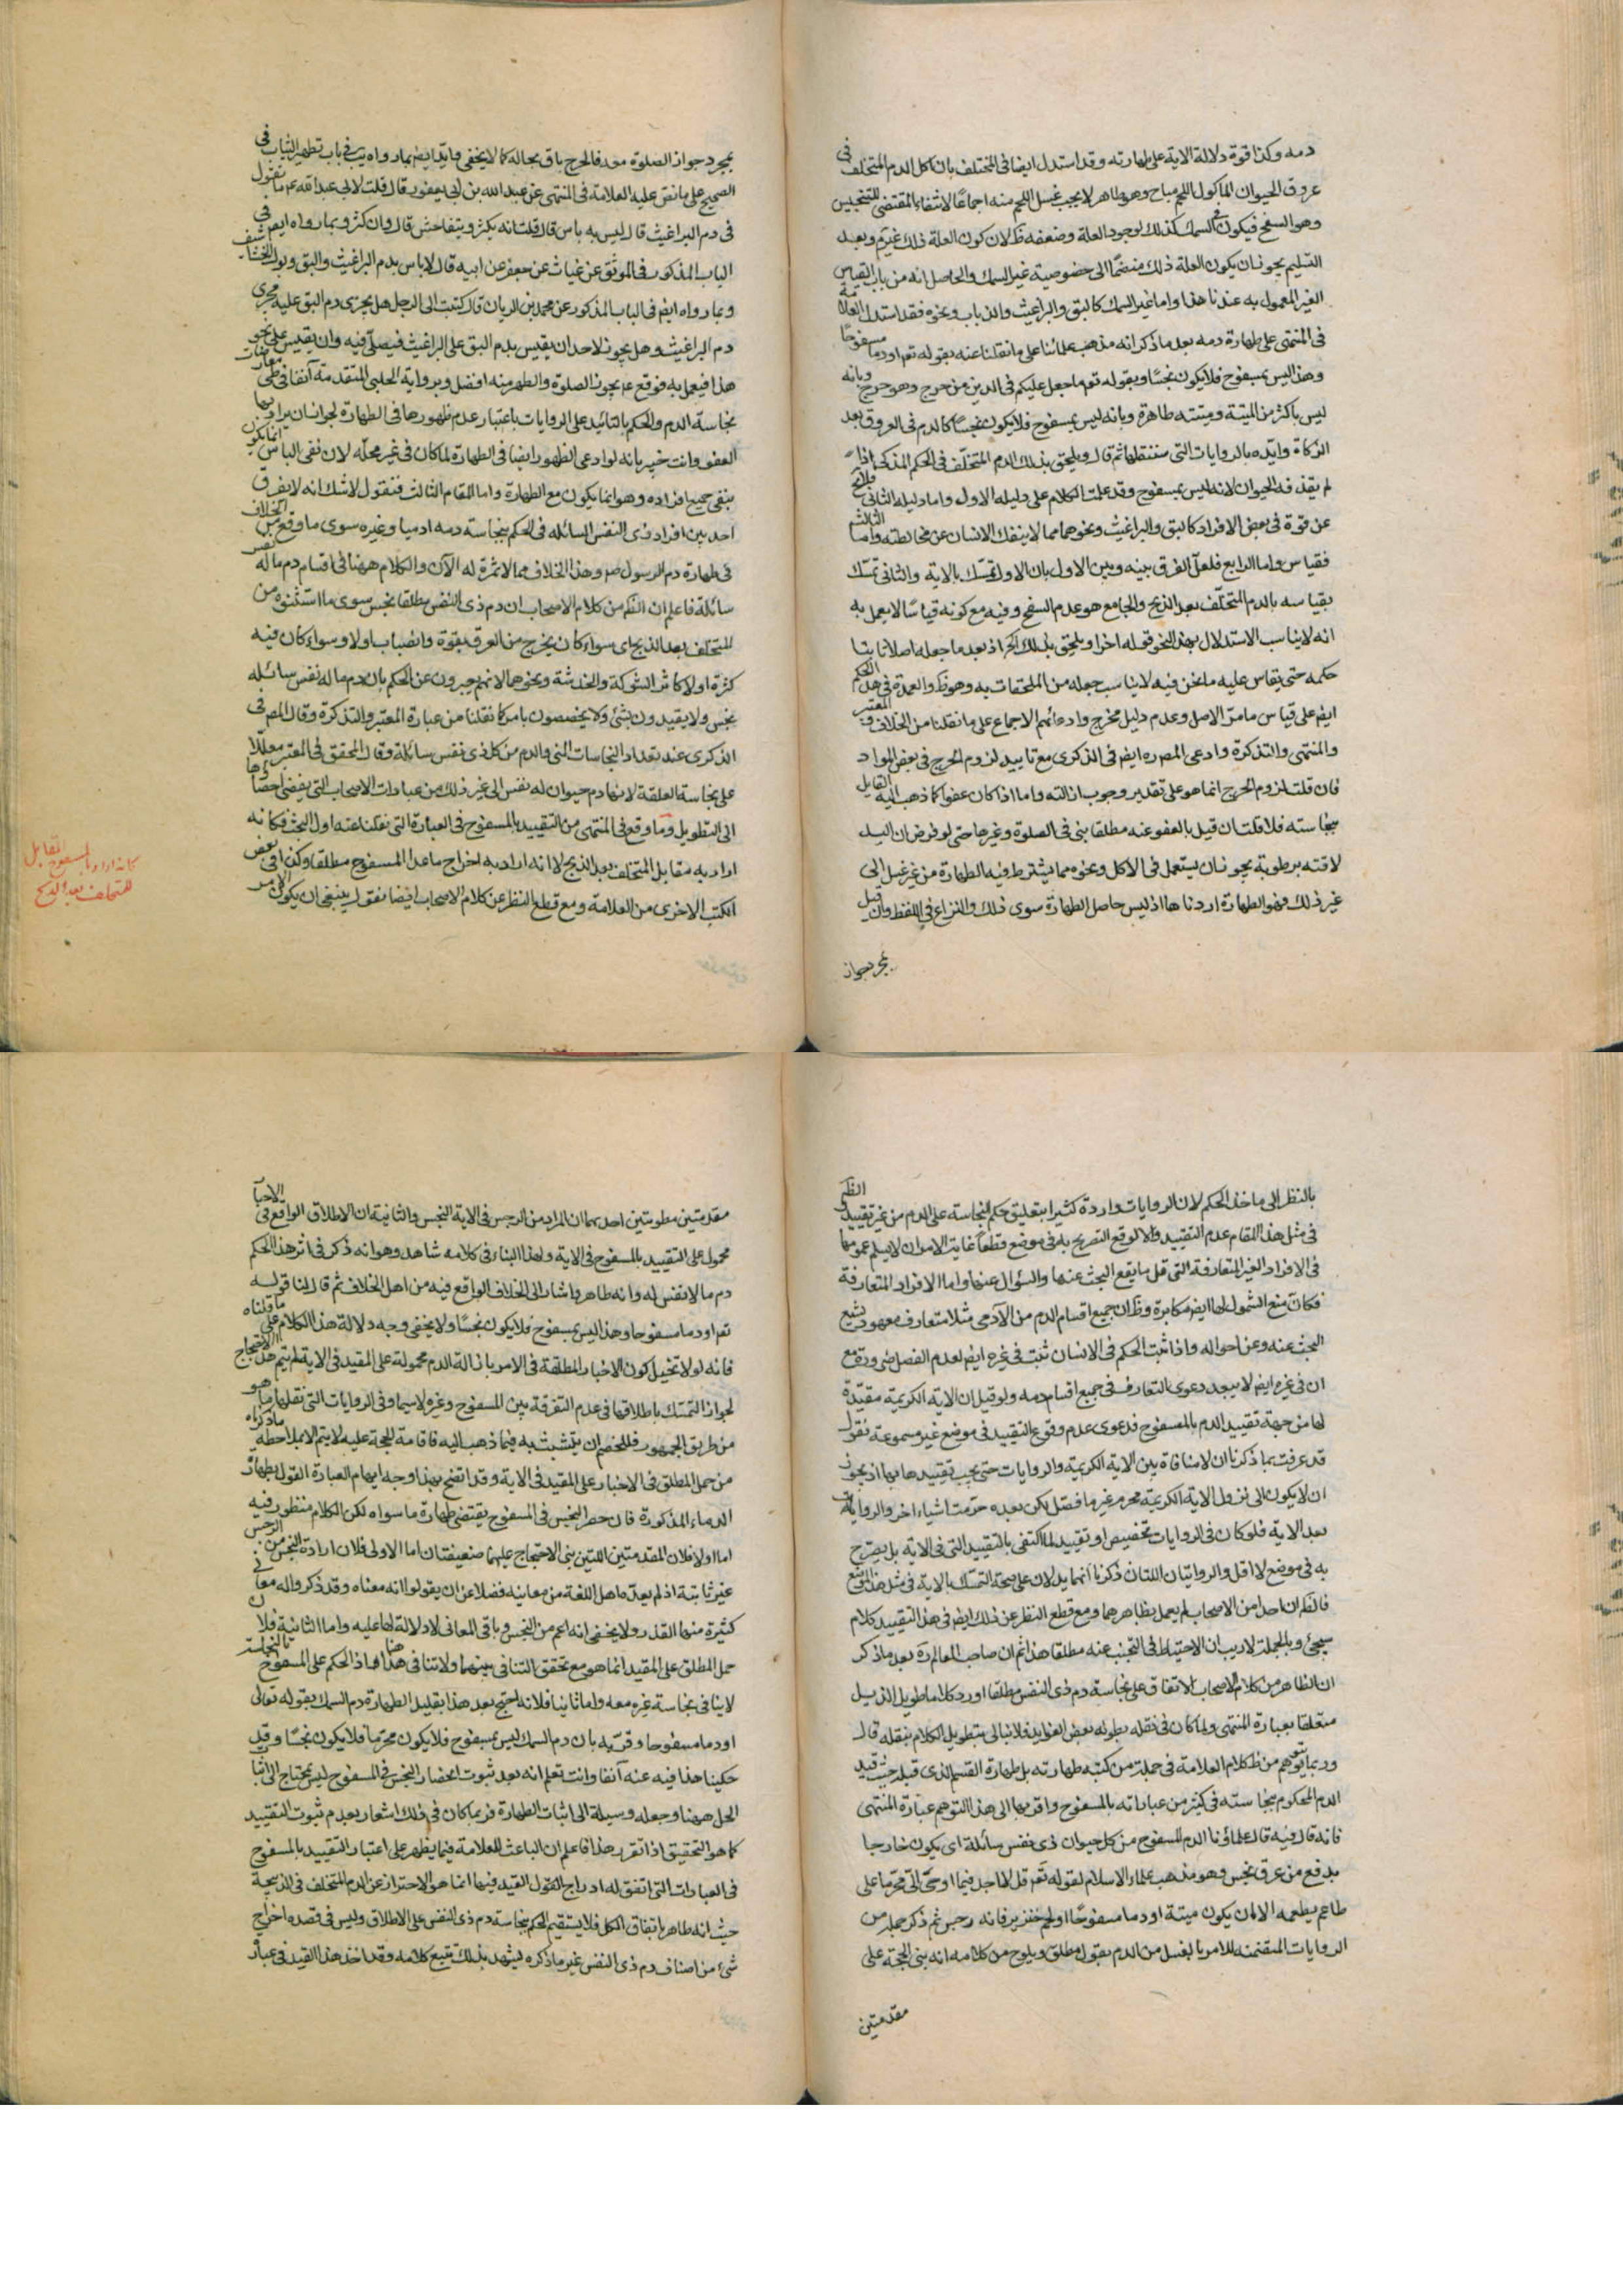 دمه وكذا قوة دلالة الاية على طهارته وقد استدل ايضا في المختلف بان كل الدم المتخلف في
عروق الحيوان الماكول اللحم مباح وهو طاهر لا يجب غسل اللحم منه اجماعًا لانتفاء المقتضي للتنجيس
وهو السفح فيكون في السمك كذلك لوجود العلة وضعفه ظ لان كون العلة ذلك غير مم وبعد
التسليم يجوز ان يكون العلة ذلك منضمًا الى خصوصية غير السمك والحاصل انه من باب القياس
الغير المعمول به عندنا هذا واما غير السمك كالبق والبراغيث والذباب ونحوه فقد استدل العلامة
في المنتهى على طهارة دمه بعد ما ذكر انه مذهب علمائنا على ما نقلنا عنه بقوله تعم او دما مسفوحًا
وهذا ليس بمسفوح فلا يكون نجسًا وبقوله تعم ما جعل عليكم في الدين من حرج وهو حرج وبانه
ليس باكثر من الميتة وميتته طاهرة وبانه ليس بمسفوح فلا يكون نجسًا كالدم في العروق بعد
الذكاة وايده بالروايات التي سننقلها ثم قال ويلحق بذلك الدم المتخلف في الحكم المذكى اذا
لم يقذفه الحيوان لانه ليس بمسفوح وقد علمت الكلام على دليله الاول واما دليله الثاني فلا يخ
عن قوة في بعض الافراد كالبق والبراغيث ونحوهما مما لا ينفك الانسان عن مخالطته واما الثالث
فقياس واما الرابع فلعل الفرق بينه وبين الاول بان الاول تمسك بالاية والثاني تمسك
بقياسه بالدم المتخلف بعد الذبح والجامع هو عدم السفح وفيه مع كونه قياسًا لا يعمل به
انه لا يناسب الاستدلال بهذا النحو قوله اخرا ويلحق بذلك اذ بعد ما جعله اصلا ثابتا
حكمه حتى يقاس عليه ما نحن فيه لا يناسب جعله من الملحقات به وهو ظ والعمدة في هذا الحكم
ايض على قياس ما مر الاصل وعدم دليل مخرج وادعائهم الاجماع على ما نقلنا من الخلاف والمعتبر
والمنتهى والتذكرة وادعى المص ره ايض في الذكرى مع تاييد لزوم الحرج في بعض المواد
فان قلت لزوم الحرج انما هو على تقدير وجوب ازالته واما اذا كان عفوا كما ذهب اليه القايل
بنجاسته فلا قلت ان قيل بالعفو عنه مطلقا بنى في الصلوة وغيرها حتى لو فرض ان اليد
لاقته برطوبة يجوز ان يستعمل في الاكل ونحوه مما يشترط فيه الطهارة من غير غسل الى
غير ذلك فهو الطهارة اردناها اذ ليس حاصل الطهارة سوى ذلك والنزاع في اللفظ وان قيل
بمجرد جواز
بمجرد جواز الصلوة معه فالحرج باق بحاله كما لا يخفى وايد ايض بما رواه يب في باب تطهير الثياب في
الصحيح على ما نص عليه العلامة في المنتهى عن عبد الله بن ابي يعفور قال قلت لابي عبد الله عم ما تقول
في دم البراغيث قال ليس به باس قال قلت انه يكثر ويتفاحش قال وان كثر وبما رواه ايض في
الباب المذكور في الموثق عن غياث عن جعفر عن ابيه قال لا باس بدم البراغيث والبق وبول الخشاشيف
وبما رواه ايض في الباب المذكور عن محمد بن الريان قال كتبت الى الرجل هل يجري دم البق عليه مجرى
دم البراغيث وهل يجوز لاحد ان يقيس بدم البق على البراغيث فيصلي فيه وان يقيس على نحو
هذا فيعمل به فوقع عم يجوز الصلوة والطهر منه افضل وبرواية الحلبي المتقدمة آنفا في
نجاسة الدم والحكم بالتائيد على الروايات باعتبار عدم ظهورها في الطهارة لجواز ان يراد بها
العفو وانت خبير بانه لو ادعى الظهور ايضا في الطهارة لما كان في غير محله لان نفى الباس انما يكون
بنفى جميع افراده وهو انما يكون مع الطهارة واما المقام الثالث فنقول لا شك انه لا يفرق
احد بين افراد ذى النفس السائلة في الحكم بنجاسة دمه ادميا وغيره سوى ما وقع من الخلاف
في طهارة دم الرسول ص وهذا الخلاف مما لا ثمرة له الآن والكلام ههنا في اقسام دم ما له نفس
سائلة فاعلم ان الظ من كلام الاصحاب ان دم ذى النفس مطلقا نجس سوى ما استثنوه من
المتخلف بعد الذبح اى سواء كان يخرج من العرق بقوة وانصباب اولا وسواء كان فيه
كثرة اولا كاثر الشوكة والخدشة ونحوهما لانهم يعبرون عن الحكم بان دم ما له نفس سائله
نجس ولا يقيدون بشئ ولا يخصصون بامر كما نقلنا من عبارة المعتبر والتذكرة وقال المص في
الذكرى عند تعداد النجاسات المنى والدم من كل ذى نفس سائلة وقال المحقق في المعتبر معللا
على نجاسة العلقة لانها دم حيوان له نفس الى غير ذلك من عبارات الاصحاب التي يفضى احصاؤها
الى التطويل وما وقع في المنتهى من التقييد بالمسفوح في العبارة التي نقلنا عنه اول البحث فكانه
اراد به مقابل المتخلف بعد الذبح لا انه اراد به اخراج ما عدا المسفوح مطلقا وكذا في بعض
الكتب الاخرى من العلامة ومع قطع النظر عن كلام الاصحاب ايضا نقول ينبغي ان يكون الامر
كانه اراد بالمسفوح المقابل
للمتخلف بعد الذبح
بالنظر الى ماخذ الحكم لان الروايات واردة كثيرا بتعليق حكم النجاسة على الدم من غير تقييد والظ
في مثل هذا المقام عدم التقييد والا لوقع التصريح به في موضع قطعا غاية الامر ان لا يسلم عمومها
في الافراد الغير المتعارفة التي قل ما يقع البحث عنها والسؤال عنها واما الافراد المتعارفة
فكان منع الشمول لها ايض مكابرة وظ ان جميع اقسام الدم من الآدمي مثلا متعارف معهود يشيع
البحث عنه وعن احواله واذا ثبت الحكم في الانسان ثبت في غيره ايض لعدم الفصل ضرورة مع
ان في غيره ايض لا يبعد دعوى التعارف في جميع اقسام دمه ولو قيل ان الاية الكريمة مقيدة
لها من جهة تقييد الدم بالمسفوح فدعوى عدم وقوع التقييد في موضع غير مسموعة نقول
قد عرفت بما ذكرنا ان لا منافاة بين الاية الكريمة والروايات حتى يجب تقييدها بها اذ يجوز
ان لا يكون الى نزول الاية الكريمة محرم غير ما فصل لكن بعده حرمت اشياء اخر والروايات
بعد الاية فلو كان في الروايات تخصيص او تقييد لما اكتفى بالتقييد التي في الاية بل يصرح
به في موضع لا اقل والروايتان اللتان ذكرنا انهما يدلان على صحة التمسك بالاية في مثل هذا الموضع
فالظ ان احدا من الاصحاب لم يعمل بظاهرهما ومع قطع النظر عن ذلك ايض في هذا التقييد كلام
سيجئ وبالجملة لا ريب ان الاحتياط في التجنب عنه مطلقا هذا ثم ان صاحب المعالم ره بعد ما ذكر
ان الظاهر من كلام الاصحاب الاتفاق على نجاسة دم ذى النفس مطلقا اورد كلاما طويل الذيل
متعلقا بعبارة المنتهى ولما كان في نقله بطوله بعض الفوايد فلا نبالي بتطويل الكلام بنقله قال
وربما يتوهم من ظ كلام العلامة في جملة من كتبه طهارته بل طهارة القسم الذي قبله حيث قيد
الدم المحكوم بنجاسته في كثير من عباراته بالمسفوح واقربها الى هذا التوهم عبارة المنتهى
فانه قال فيه قال علماؤنا الدم المسفوح من كل حيوان ذى نفس سائلة اى يكون خارجا
بدفع من عرق نجس وهو مذهب علماء الاسلام لقوله تعم قل لا اجد فيما اوحى الى محرما على
طاعم يطعمه الا ان يكون ميتة او دما مسفوحًا او لحم خنزير فانه رجس ثم ذكر جملة من
الروايات المتضمنة للامر بالغسل من الدم بقول مطلق ويلوح من كلامه انه بنى الحجة على
مقدمتين
مقدمتين مطويتين احديهما ان المراد من الرجس في الاية النجس والثانية ان الاطلاق الواقع في الاخبار
محمول على التقييد بالمسفوح في الاية ولهذا البناء في كلامه شاهد وهو انه ذكر في اثر هذا الحكم
دم ما لا نفس له وانه طاهر واشار الى الخلاف الواقع فيه من اهل الخلاف ثم قال لنا قوله
تعم او دما مسفوحا وهذا ليس بمسفوح فلا يكون نجسًا ولا يخفى وجه دلالة هذا الكلام على ما قلناه
فانه لولا تخيل كون الاخبار المطلقة في الامر بازالة الدم محمولة على المقيد في الاية لم يتم هذا الاحتجاج
لجواز التمسك باطلاقها في عدم التفرقة بين المسفوح وغيره لا سيما وفي الروايات التي نقلها ما هو
من طريق الجمهور فللخصم ان يتشبث به فيما ذهب اليه فاقامة الحجة عليه لا يتم الا بملاحظة ما ذكرناه
من حمل المطلق في الاخبار على المقيد في الاية وقد اتضح بهذا وجه ايهام العبارة القول بطهارة
الدماء المذكورة فان حصر النجس في المسفوح يقتضي طهارة ما سواه لكن الكلام منظور فيه
اما اولا فلان المقدمتين اللتين بنى الاحتجاج عليهما ضعيفتان اما الاولى فلان ارادة النجس من الرجس
غير ثابتة اذ لم يعده اهل اللغة من معانيه فضلا عن ان يقولوا انه معناه وقد ذكروا له معاني
كثيرة منها القذر ولا يخفى انه اعم من النجس وباقي المعاني لا دلالة لها عليه واما الثانية فلان
حمل المطلق على المقيد انما هو مع تحقق التنافي بينهما ولا تنافي هنا اذ الحكم على المسفوح بالنجاسة
لا ينافي نجاسة غيره معه واما ثانيا فلانه احتج بعد هذا بقليل لطهارة دم السمك بقوله تعالى
او دما مسفوحا وقربه بان دم السمك ليس بمسفوح فلا يكون محرما فلا يكون نجسًا وقد
حكينا هذا فيه عنه آنفا وانت تعلم انه بعد ثبوت انحصار النجس في المسفوح ليس يحتاج الى اثبات
الحل ههنا وجعله وسيلة الى اثبات الطهارة فربما كان في ذلك اشعار بعدم ثبوت التقييد
كما هو التحقيق اذا تقرر هذا فاعلم ان الباعث للعلامة فيما يظهر على اعتبار التقييد بالمسفوح
في العبارات التي اتفق له ادراج القول المقيد فيها انما هو الاحتراز عن الدم المتخلف في الذبيحة
حيث انه طاهر باتفاق الكل فلا يستقيم الحكم بنجاسة دم ذى النفس على الاطلاق وليس في قصده اخراج
شئ من اصناف دم ذى النفس غير ما ذكره يشهد بذلك تتبع كلامه وقد اخذ هذا القيد في عبارة